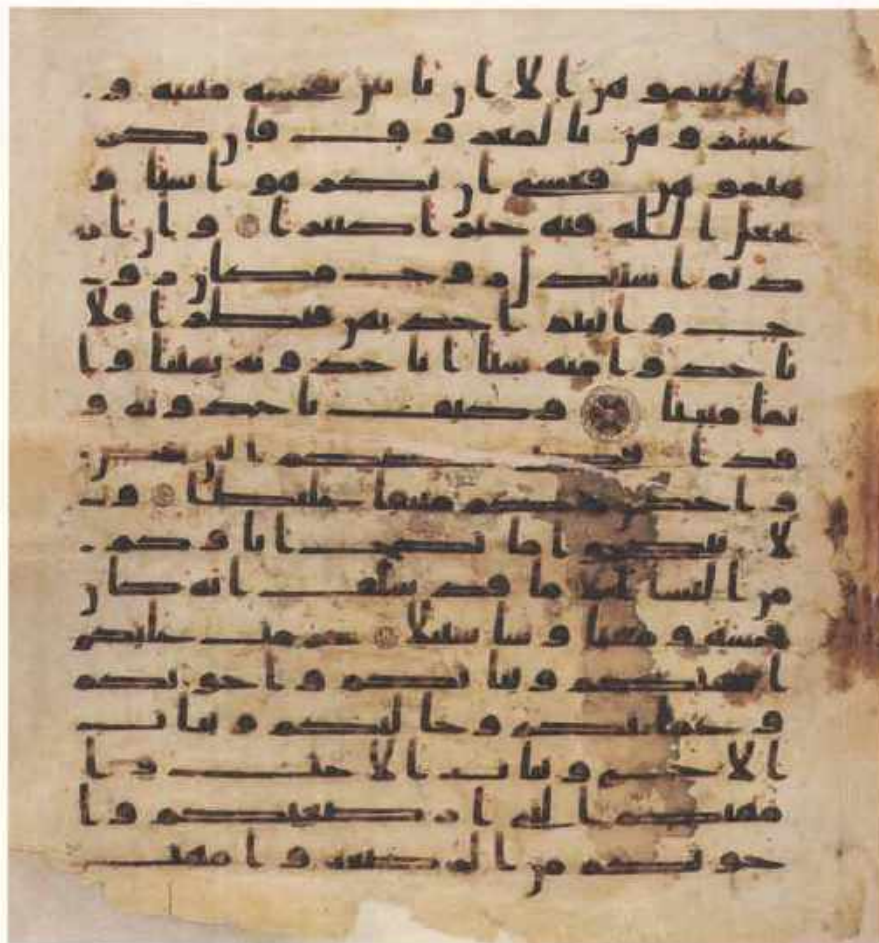 ما اتيتموهن الا ان ياتين بفحشه مبينه و
عشروهن بالمعروف فان كر
هتموهن فعسى ان تكرهوا شيا و
يجعل الله فيه خيرا كثيرا وان ار
دتم استبدال زوج مكان زو
ج واتيتم احديهن قنطرا فلا
تاخذوا منه شيا اتاخذونه بهتنا وا
ثما مبينا وكيف تاخذونه و
قد افضى بعضكم الى بعض
واخذن منكم ميثقا غليظا و
لا تنكحوا ما نكح اباوكم
من النسا الا ما قد سلف انه كان
فحشه ومقتا وسا سبيلا حرمت عليكم
امهتكم وبناتكم واخوتكم
وعمتكم وخلتكم وبنات
الاخ وبنات الاخت وا
مهتكم التي ارضعنكم وا
خوتكم من الرضعه وامهت